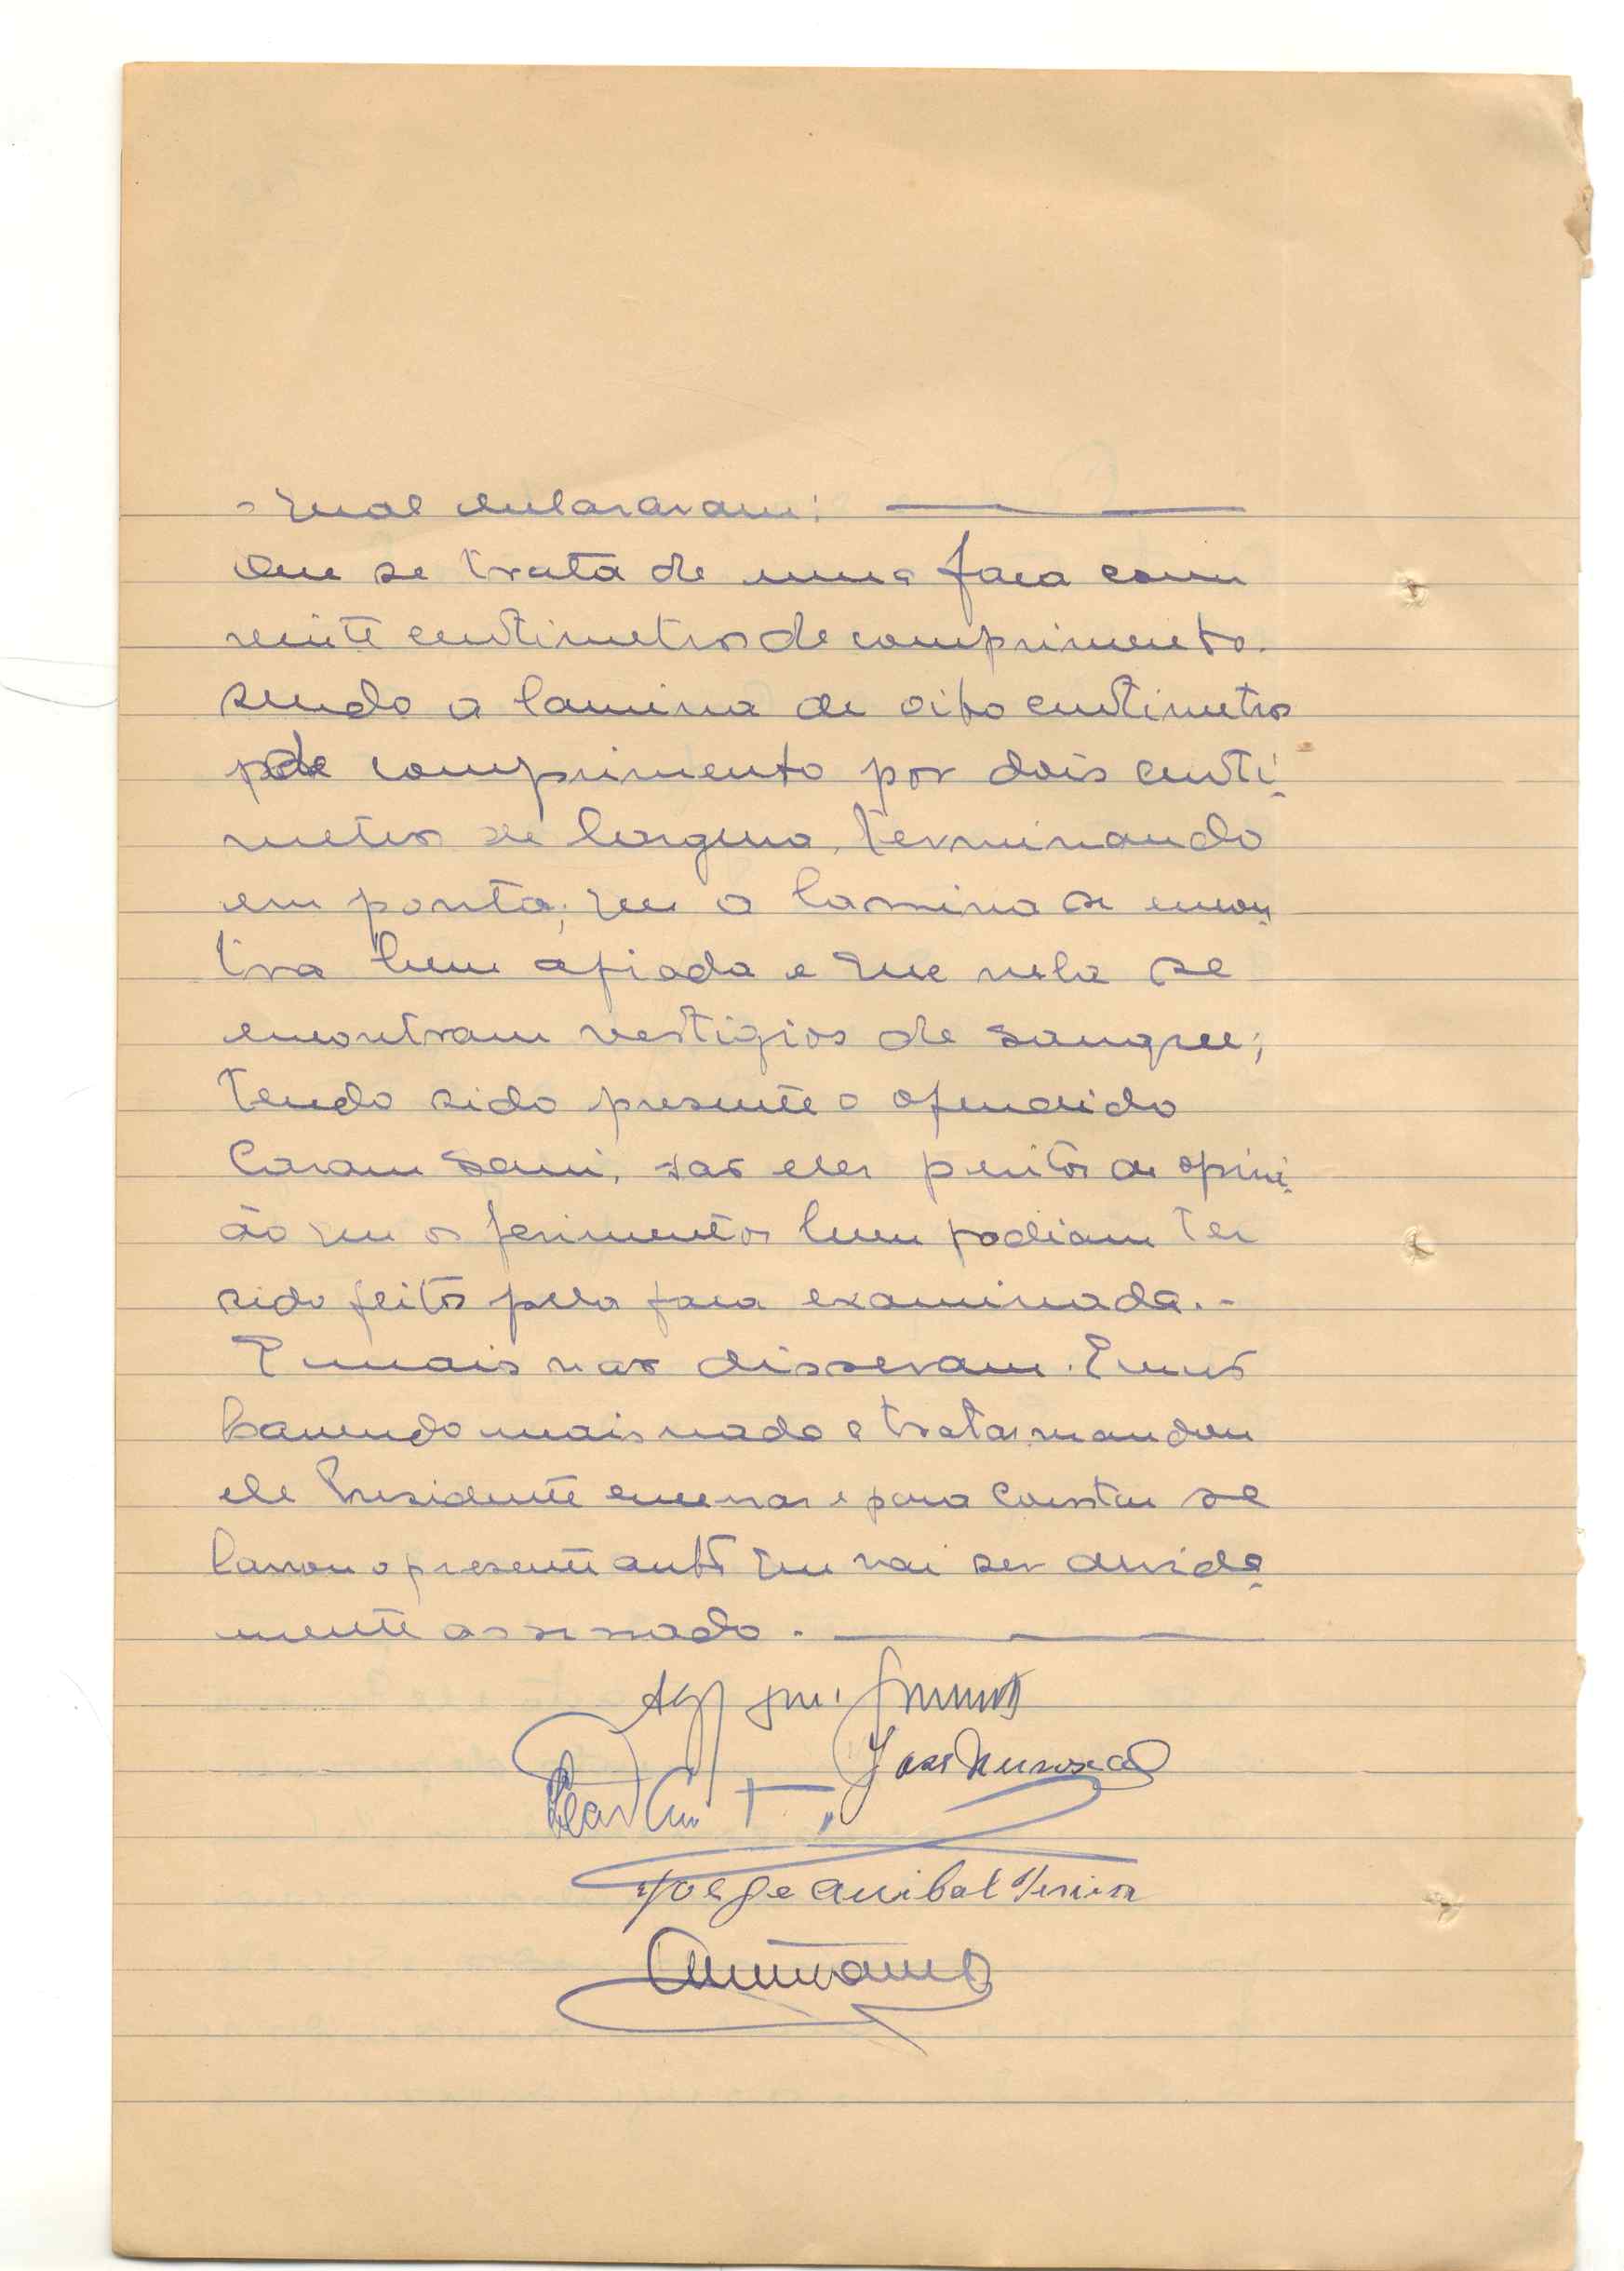 o qual declararam:
Que se trata de uma faca com
vinte centimetros de comprimento.
sendo a lamina de oito centimetros
de comprimento por dois centi-
metros de largura, terminando
em ponta; que a lamina se encon-
tra bem afiada e que nela se
encontram vestigios de sangue;
tendo sido presente o ofendido
Caram Sami, são eles peritos de opini-
ão que os ferimentos bem podiam ter
sido feitos pela faca examinada.-
E mais não disseram. E não
havendo mais nada a tratar mandou
ele Presidente encerrar e para constar se
lavrou o presente auto que vai ser devida-
mente assinado.
José
Jorge Anibal